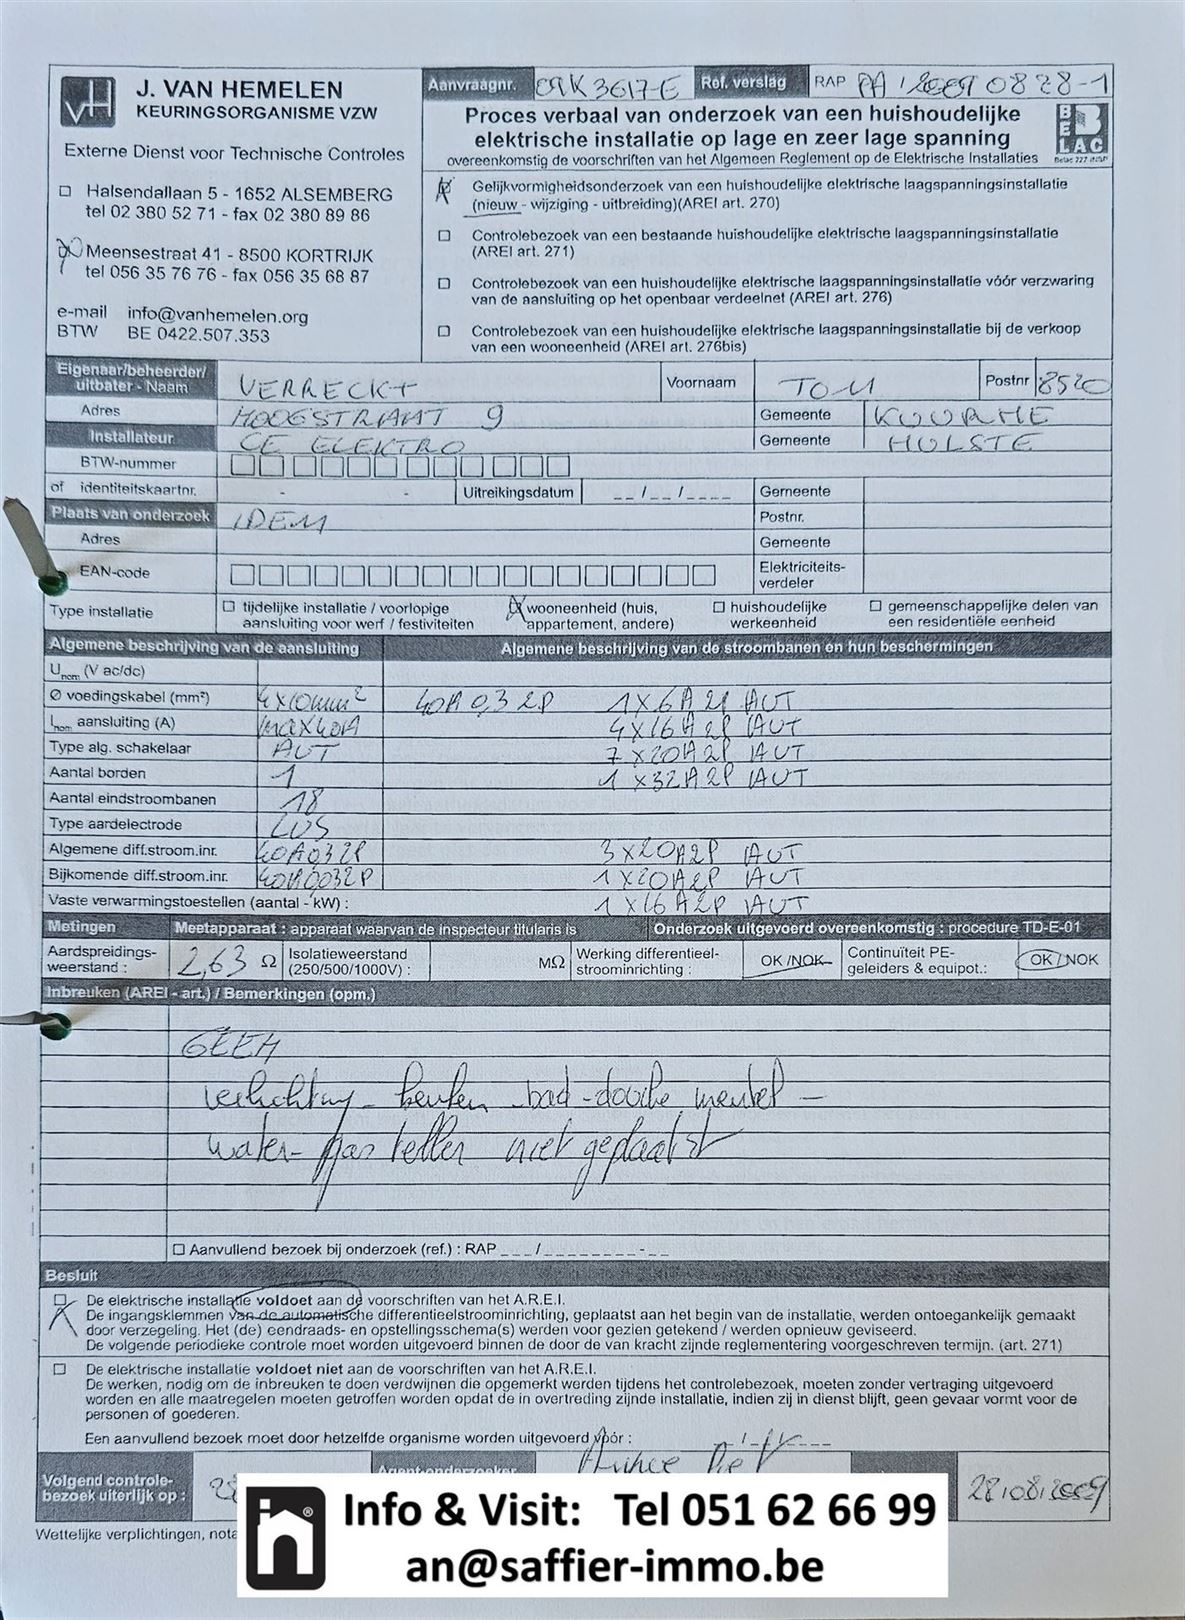 J. VAN HEMELEN
KEURINGSORGANISME VZW
Externe Dienst voor Technische Controles
Halsendallaan 5 - 1652 ALSEMBERG
tel 02 380 52 71 - fax 02 380 89 86
Meensestraat 41 - 8500 KORTRIJK
tel 056 35 76 76 - fax 056 35 68 87
e-mail info@vanhemelen.org
BTW BE 0422.507.353
Aanvraagnr. Ref. verslag RAP PA / 20090828-1
Proces verbaal van onderzoek van een huishoudelijke
elektrische installatie op lage en zeer lage spanning
overeenkomstig de voorschriften van het Algemeen Reglement op de Elektrische Installaties
BELAC
Gelijkvormigheidsonderzoek van een huishoudelijke elektrische laagspanningsinstallatie
(nieuw - wijziging - uitbreiding)(AREI art. 270)
Controlebezoek van een bestaande huishoudelijke elektrische laagspanningsinstallatie
(AREI art. 271)
Controlebezoek van een huishoudelijke elektrische laagspanningsinstallatie vóór verzwaring
van de aansluiting op het openbaar verdeelnet (AREI art. 276)
Controlebezoek van een huishoudelijke elektrische laagspanningsinstallatie bij de verkoop
van een wooneenheid (AREI art. 276bis)
Eigenaar/beheerder/
uitbater - Naam VERRECKT Voornaam TOM Postnr 8520
Adres HOOGSTRAAT 9 Gemeente KUURNE
Installateur CE ELEKTRO Gemeente HULSTE
BTW-nummer
of identiteitskaartnr. - - Uitreikingsdatum __/__/____ Gemeente
Plaats van onderzoek IDEM Postnr.
Adres Gemeente
EAN-code Elektriciteits-
verdeler
Type installatie tijdelijke installatie / voorlopige wooneenheid (huis, huishoudelijke gemeenschappelijke delen van
aansluiting voor werf / festiviteiten appartement, andere) werkeenheid een residentiële eenheid
Algemene beschrijving van de aansluiting Algemene beschrijving van de stroombanen en hun beschermingen
Unom (V ac/dc)
Ø voedingskabel (mm²) 4x10mm² 40A 0,3 2P 1x6A 2P AUT
Inom aansluiting (A) max 40A 4x16A 2P AUT
Type alg. schakelaar AUT 7x20A 2P AUT
Aantal borden 1 1x32A 2P AUT
Aantal eindstroombanen 18
Type aardelectrode LUS
Algemene diff.stroom.inr. 40A 0,3 2P 3x20A 2P AUT
Bijkomende diff.stroom.inr. 40A 0,03 2P 1x20A 2P AUT
Vaste verwarmingstoestellen (aantal - kW) : 1x16A 2P AUT
Metingen Meetapparaat : apparaat waarvan de inspecteur titularis is Onderzoek uitgevoerd overeenkomstig : procedure TD-E-01
Aardspreidings- 2,63 Ω Isolatieweerstand MΩ Werking differentieel- OK/NOK Continuïteit PE- OK/NOK
weerstand : (250/500/1000V) : stroominrichting : geleiders & equipot.:
Inbreuken (AREI - art.) / Bemerkingen (opm.)
GEEN
verlichting - keuken - bad - douche meubel -
water - gas teller niet geplaatst
Aanvullend bezoek bij onderzoek (ref.) : RAP ___/________-__
Besluit
De elektrische installatie voldoet aan de voorschriften van het A.R.E.I.
De ingangsklemmen van de automatische differentieelstroominrichting, geplaatst aan het begin van de installatie, werden ontoegankelijk gemaakt
door verzegeling. Het (de) eendraads- en opstellingsschema(s) werden voor gezien getekend / werden opnieuw geviseerd.
De volgende periodieke controle moet worden uitgevoerd binnen de door de van kracht zijnde reglementering voorgeschreven termijn. (art. 271)
De elektrische installatie voldoet niet aan de voorschriften van het A.R.E.I.
De werken, nodig om de inbreuken te doen verdwijnen die opgemerkt werden tijdens het controlebezoek, moeten zonder vertraging uitgevoerd
worden en alle maatregelen moeten getroffen worden opdat de in overtreding zijnde installatie, indien zij in dienst blijft, geen gevaar vormt voor de
personen of goederen.
Een aanvullend bezoek moet door hetzelfde organisme worden uitgevoerd vóór :
Volgend controle- Agent-onderzoeker
bezoek uiterlijk op : 28.08.2009
Wettelijke verplichtingen,
Info & Visit: Tel 051 62 66 99
an@saffier-immo.be